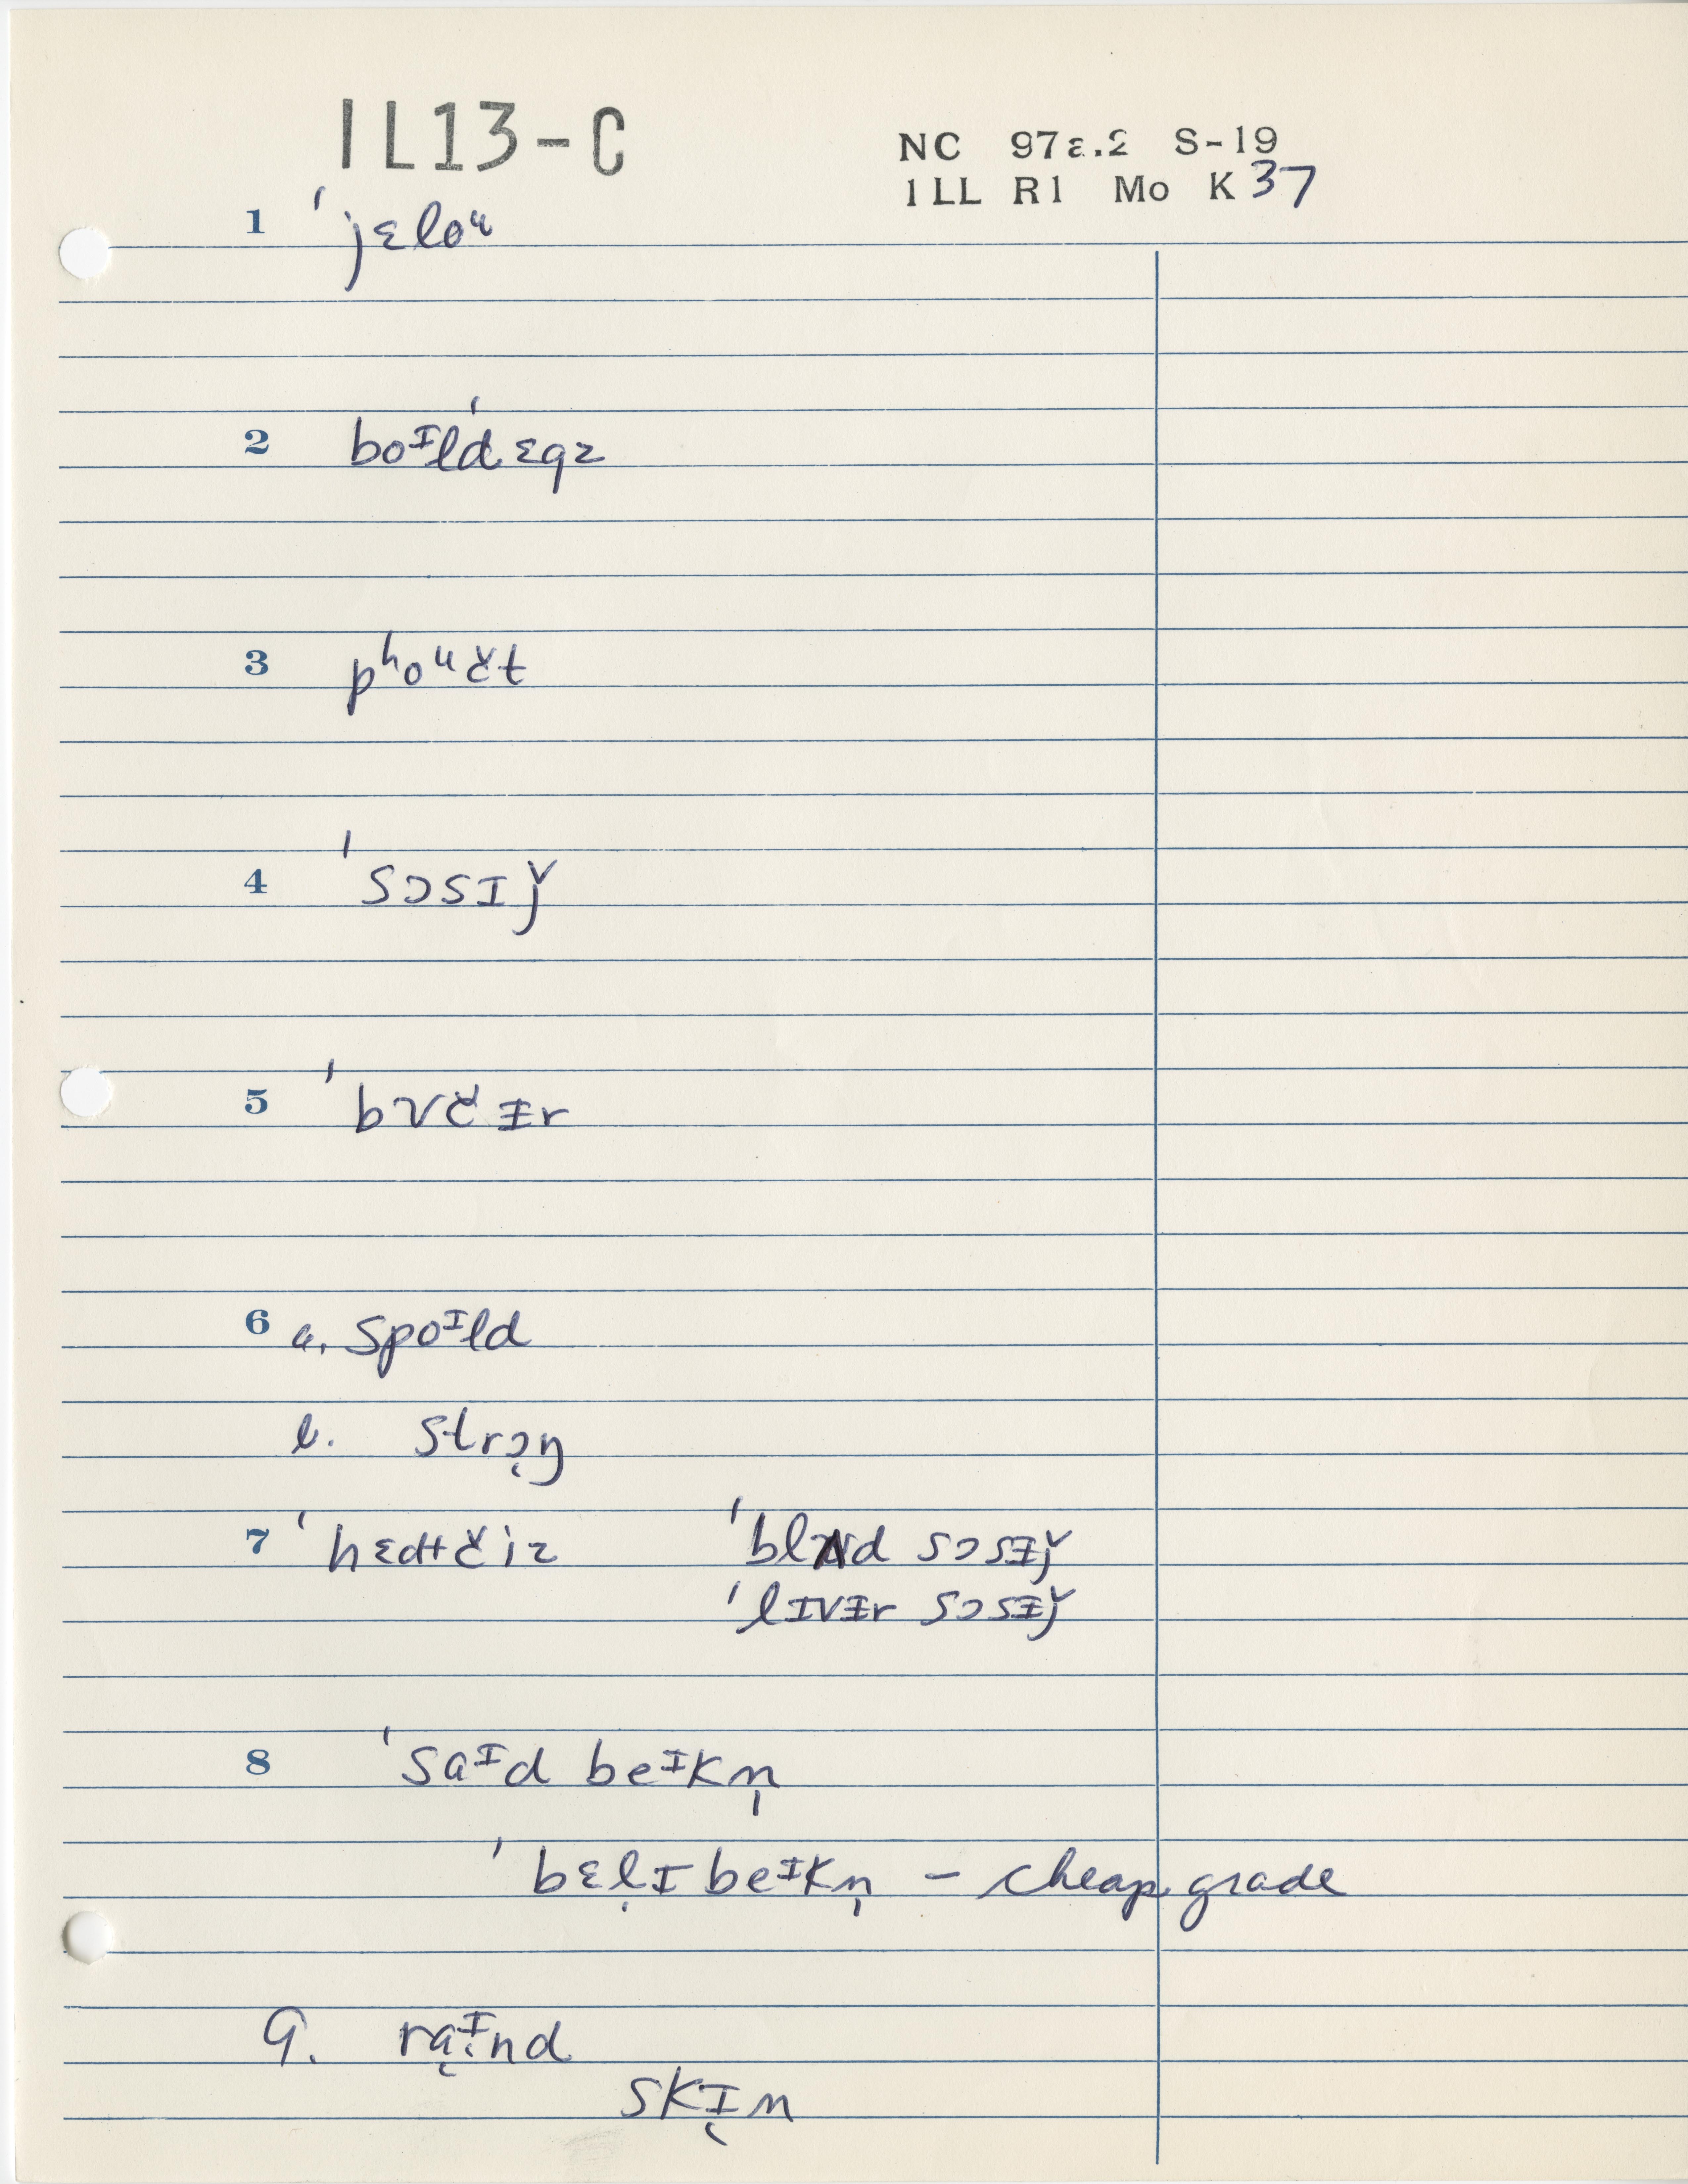 IL13-C
NC 97ε.2 S-19
1LL R1 Mo K37
1 ˈjɛloᵘ
2 boᶦldˈɛgz
3 pʰoᵘčt
4 ˈsɔsɪǰ
5 ˈbʊčɪ̵r
6 a. spoᶦld
b. strɔ̨ŋ
7 ˈhɛdčiz ˈblʌd sɔsɪ̵ǰ
ˈlɪvɪ̵r sɔsɪ̵ǰ
8 ˈsaᶦd beᶦkn̩
ˈbɛl̩ɪ beᶦkn̩ – cheap grade
9. rąᶦnd
skɪ̨n